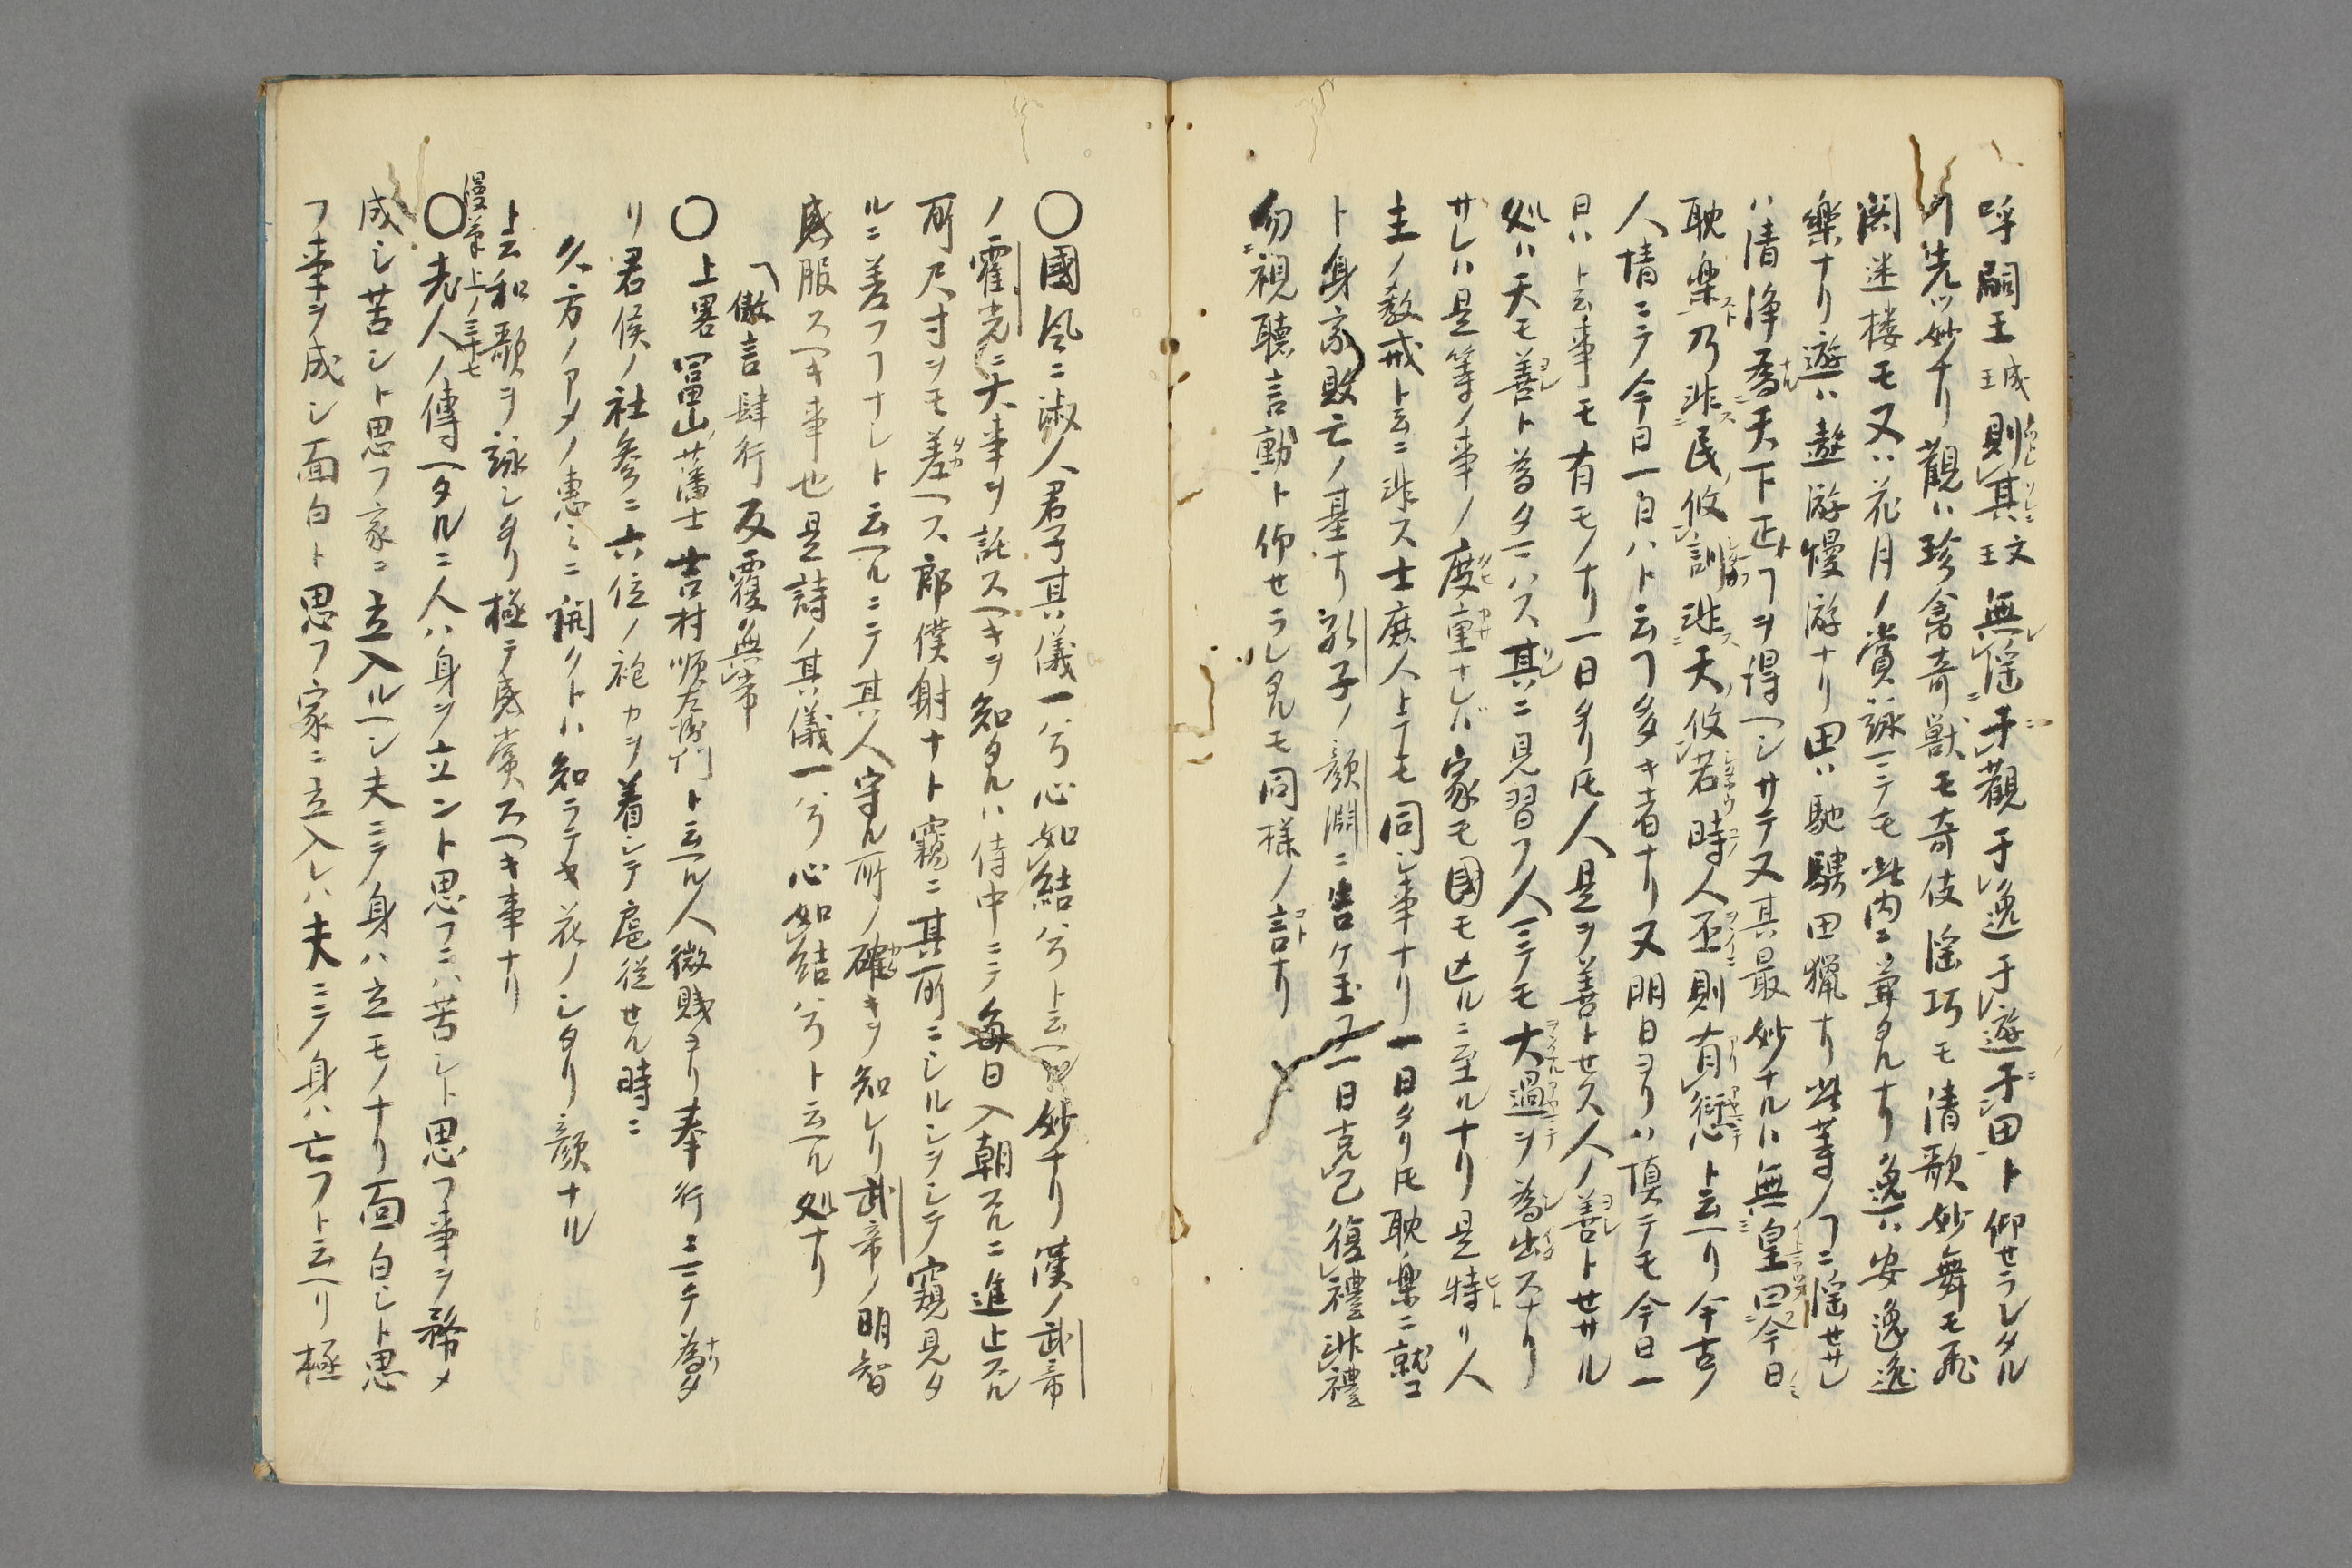 呼嗣王王城則其王文無淫于觀于逸于遊于田ト仰セラレタル
ヿ先ツ妙ナリ觀ハ珍禽奇獸モ奇伎淫巧モ清歌妙舞モ飛
閣迷楼モ又ハ花月ノ賞詠ニテモ此内ニ兼タルナリ逸ハ安逸逸
樂ナリ遊ハ遨游慢游ナリ田ハ馳騁田獵ナリ此等ノヿニ淫セサレ
ハ清浄為天下正トヿヲ得ヘシサテ又其最妙ナルハ無皇曰今日
耽樂乃非民攸訓非天攸若時人丕則有愆ト云ヘリ今古ノ
人情ニテ今日一日ハト云フ多キ者ナリ又明日ヨリハ慎テモ今日一
日ハト云事モ有モノナリ一日タリ𪜈人是ヲ善トセス人ノ善トセサル
処ハ天モ善ト為タマハス其ニ見習フ人ニテモ大過ヲ為出スナリ
サレハ是等ノ事ノ度重ナレバ家モ國モ亡ルニ至ルナリ是特リ人
主ノ教戒ト云ニ非ス士庶人ニテモ同シ事ナリ一日タリ𪜈耽樂ニ就コ
ト身家敗亡ノ基ナリ孔子ノ顔淵ニ告ケ玉フ一日克己復禮非禮
勿視聽言動ト仰セラレタルモ同様ノ言ナリ
〇國風ニ淑人君子其儀一兮心如結兮ト云ヘル妙ナリ漢ノ武帝
ノ霍光ニ大事ヲ託スヘキヲ知タルハ侍中ニテ毎日入朝スルニ進止スル
所尺寸ヲモ差ヘス郎僕射ナト竊ニ其所ニシルシヲシテ窺見タ
ルニ差フヿナシト云ヘルニテ其人守ル所ノ確キヲ知レリ武帝ノ明智
感服スヘキ事也是詩ノ其儀一兮心如結兮ト云ヘル処ナリ
傲言肆行反覆無常
〇上畧冨山ノ藩士吉村順左衛門ト云ヘル人微賤ヨリ奉行ニマテ為タ
リ君侯ノ社参ニ六位ノ袍カヲ着シテ扈從セル時ニ
久方ノアメノ惠ミニ開クトハ知ラテヤ花ノシタリ顔ナル
ト云和歌ヲ詠シタリ極テ感賞スヘキ事ナリ
漫筆上ノ三十七
〇老人ノ傳ヘタルニ人ハ身ヲ立ント思フニハ苦シト思フ事ヲ務メ
成シ苦シト思フ家ニ立入ルヘシ夫ニテ身ハ立モノナリ面白シト思
フ事ヲ成シ面白ト思フ家ニ立入レハ夫ニテ身ハ亡フト云ヘリ極